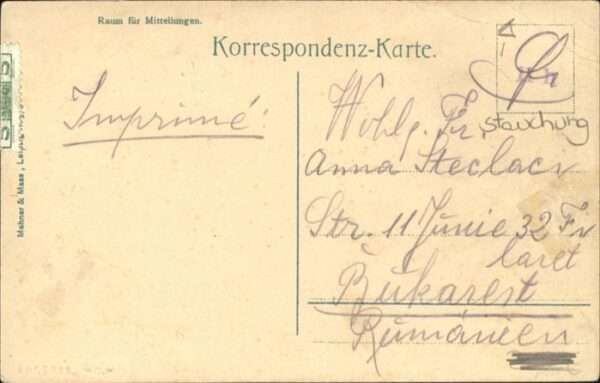 Raum für Mitteilungen.
Korrespondenz-Karte.
Imprimé:
Wohlg. Fr.
stauchung
Anna Steclacv
Str. 11 Junie 32 Fr
laret
Bukarest
Rumänien
Mehner & Maas, Leipzig